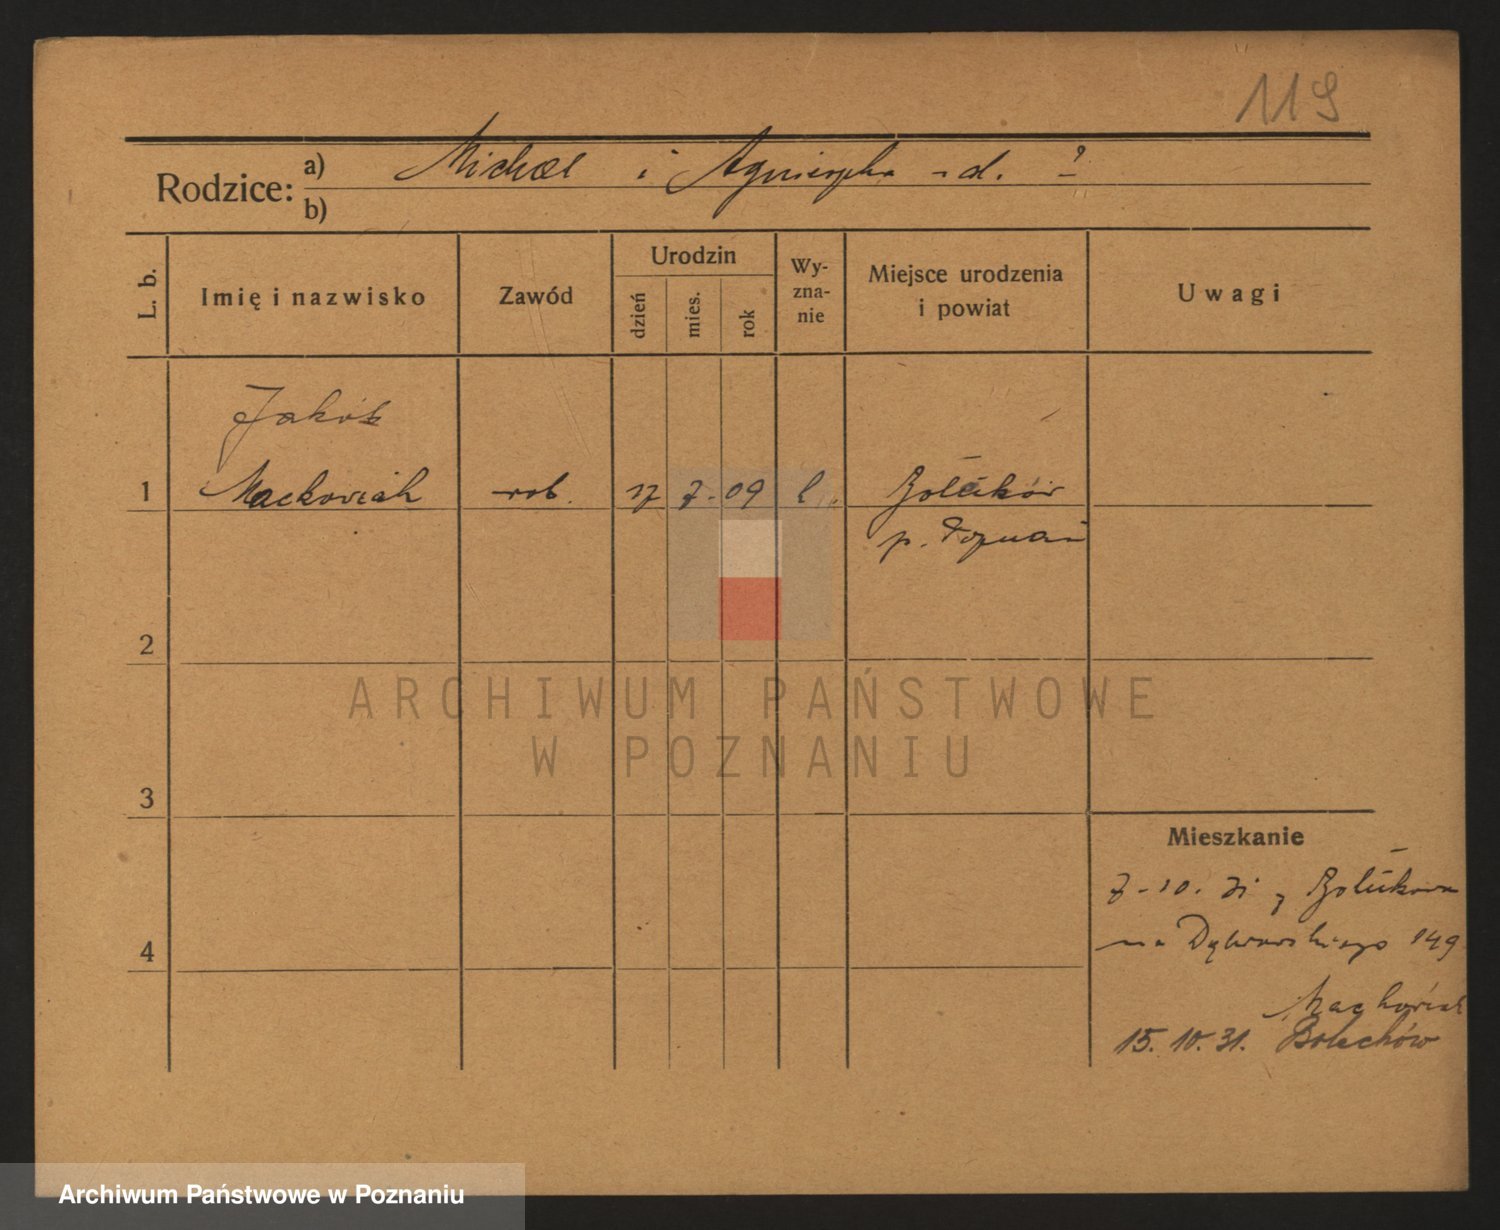 119
Rodzice: a) Michał i Agnieszka - d. ?
b)
L. b. Imię i nazwisko Zawód Urodzin dzień mies. rok Wy-zna-nie Miejsce urodzenia i powiat Uwagi
Jakób
1 Maćkowiak rob. 17 7. 09 k.
p. Poznań
2
ARCHIWUM PAŃSTWOWE
W POZNANIU
3
Mieszkanie
7-10. 31 z
4 na Dąbrowskiego 149
Maćkowiak
15. 10. 31. Bolechów
Archiwum Państwowe w Poznaniu